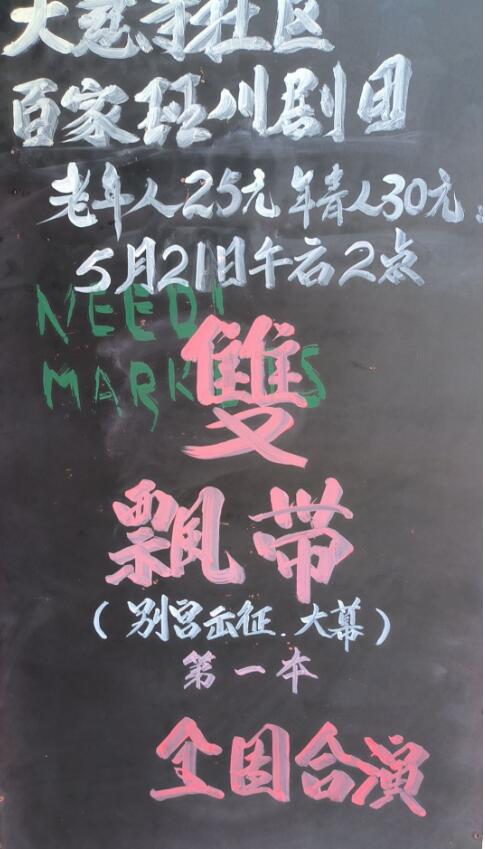 大慈寺社区
百家班川剧团
老年人25元 年青人30元
5月21日午后2点
NEED!
MARKERS
雙
飄带
(别宫出征.大幕)
第一本
全团合演